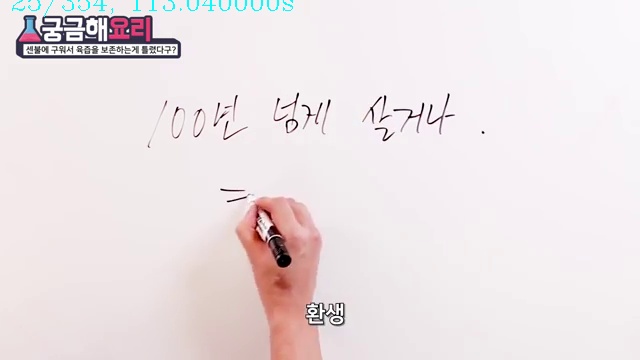 25/354, 113.040000s
궁금해요리
센불에 구워서 육즙을 보존하는게 틀렸다구?
100년 넘게 살거나.
환생